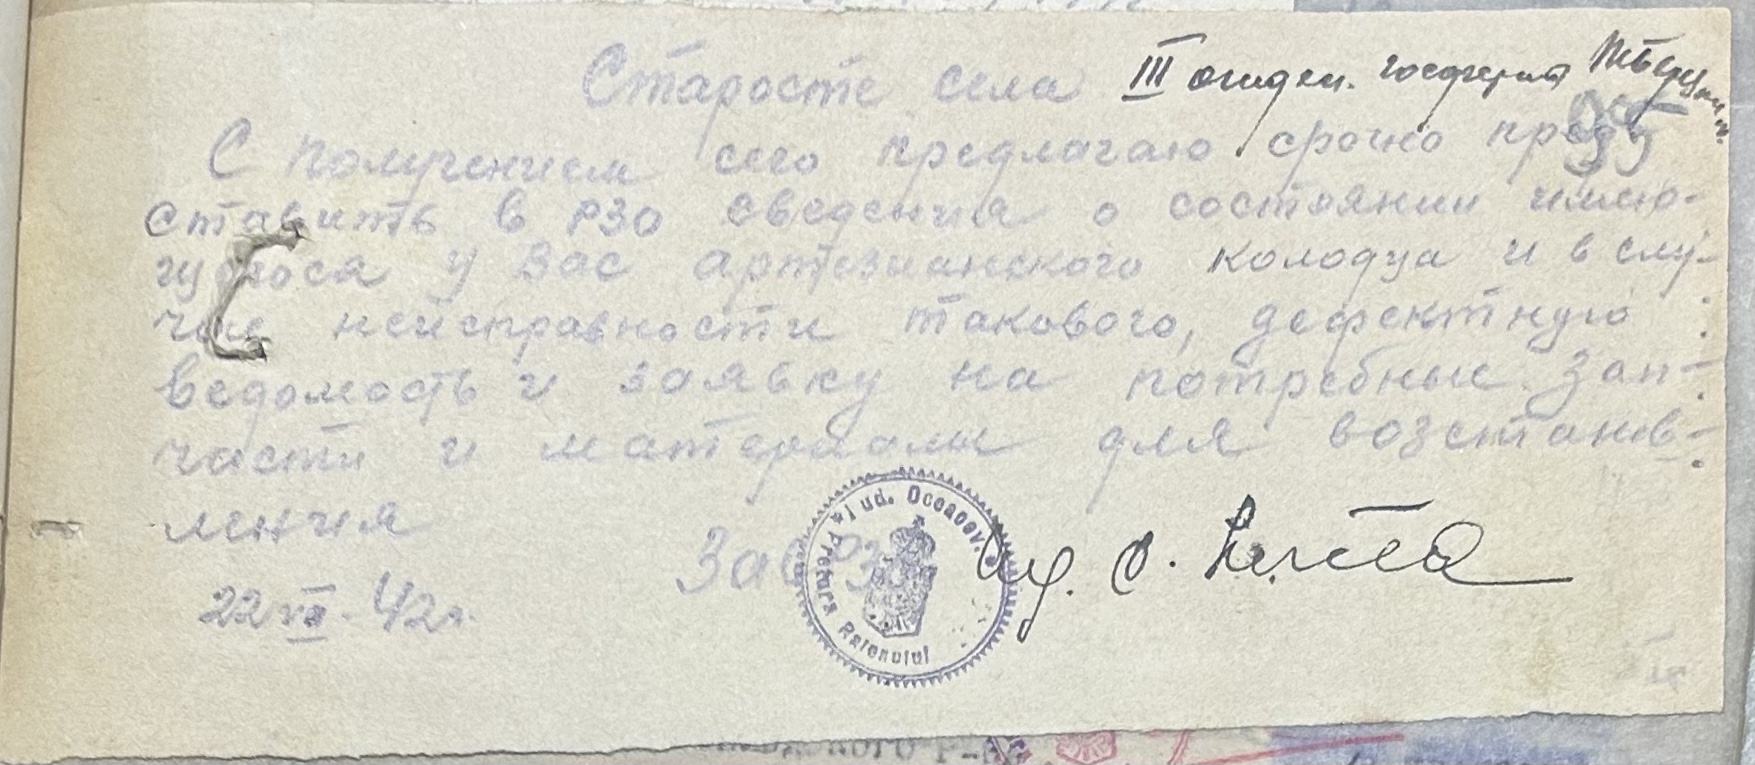 Старосте села III отделен. госфермы
95
С получением сего предлагаю срочно пред
ставить в РЗО сведения о состоянии имею-
щегося у Вас артезианского колодца и в слу-
чае неисправности такового, дефектную
ведомость и заявку на потребные зап-
части и материалы для возстанов-
ления
Зав РЗО
22 VI-42г.
Pretura Raionului * jud. Oceacov.